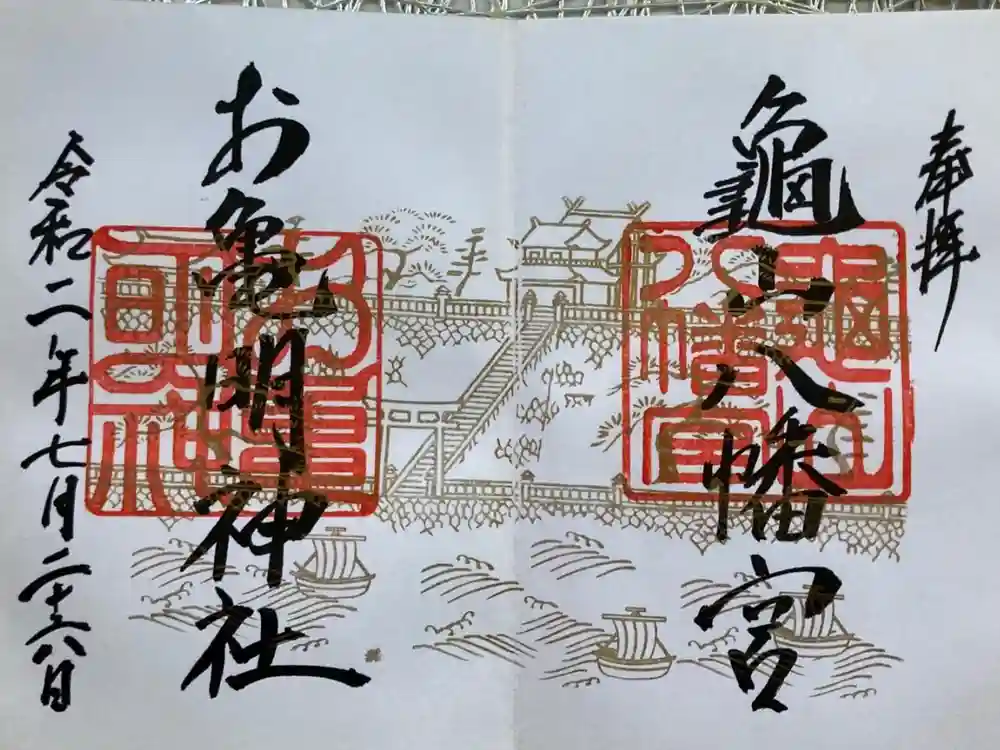 奉拝
龜山八幡宮
お亀明神社
令和二年七月二十六日